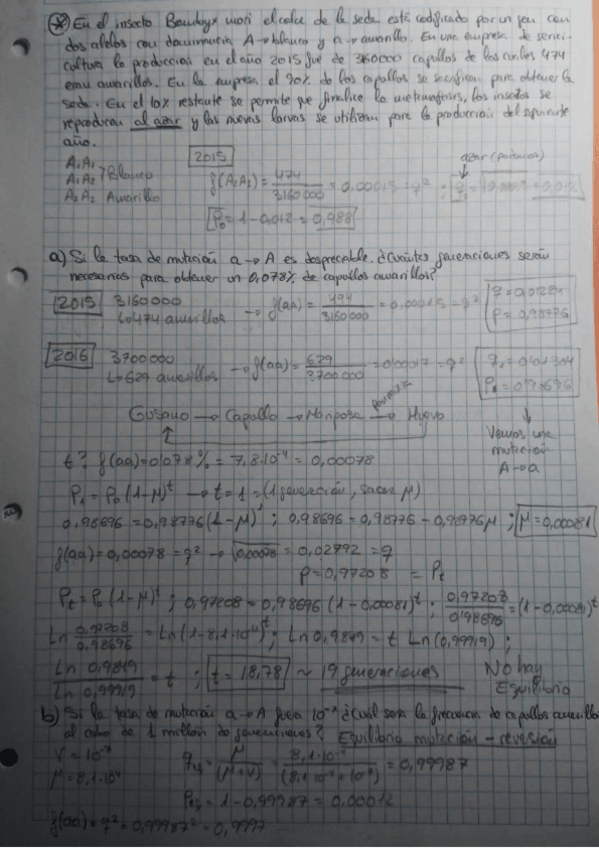 En el insecto Bombyx mori el color de la seda está codificado por un gen con
dos alelos con dominancia A → blanco y a → amarillo. En una empresa de serici-
cultura la producción en el año 2015 fue de 3160000 capullos de los cuales 474
eran amarillos. En la empresa el 90% de los capullos se sacrifican para obtener la
seda. En el 10% restante se permite que finalice la metamorfosis, los insectos se
reproducen al azar y las nuevas larvas se utilizan para la producción del siguiente
año.
A₁A₁
A₁A₂ > Blanco
A₂A₂ Amarillo
2015
azar (panmixia)
f(A₂A₂) = 474/3160000 = 0,00015 = q² ; q₀ = √0,00015 = 0,012
P₀ = 1 - 0,012 = 0,988
a) Si la tasa de mutación a → A es despreciable. ¿Cuántas generaciones serán
necesarias para obtener un 0,078% de capullos amarillos?
2015 3160000
↳ 474 amarillos → f(aa) = 474/3160000 = 0,00015 = q²
q = 0,01224
p = 0,98776
2016 3700000
↳ 629 amarillos → f(aa) = 629/3700000 = 0,00017 = q²
q₁ = 0,01304
P₁ = 0,98696
Gusano → Capullo → Mariposa → panmixia Huevo
Vemos una
mutación
A → a
t? f(aa) = 0,078% = 7,8·10⁻⁴ = 0,00078
P₁ = P₀ (1-μ)ᵗ → t = 1 = (1 generación, sacar μ)
0,98696 = 0,98776 (1-μ)¹ ; 0,98696 = 0,98776 - 0,98776μ ; μ = 0,00081
f(aa) = 0,00078 = q² → √0,00078 = 0,02792 = q
p = 0,97208 = Pt
Pt = P₀ (1-μ)ᵗ ; 0,97208 = 0,98696 (1-0,00081)ᵗ ; 0,97208/0,98696 = (1-0,00081)ᵗ
Ln 0,97208/0,98696 = Ln (1-8,1·10⁻⁴)ᵗ ; Ln 0,9849 = t Ln (0,99919) ;
Ln 0,9849/Ln 0,99919 = t ; t = 18,78 ~ 19 generaciones
No hay
Equilibrio
b) Si la tasa de mutación a → A fuera 10⁻⁷ ¿Cuál será la frecuencia de capullos amarillos
al cabo de 1 millón de generaciones? Equilibrio mutación - reversión
V = 10⁻⁷
μ = 8,1·10⁻⁴
q eq = μ/(μ+V) = 8,1·10⁻⁴/(8,1·10⁻⁴ + 10⁻⁷) = 0,99987
Peq = 1 - 0,99987 = 0,00012
f(aa) = q² = 0,99987² = 0,9997